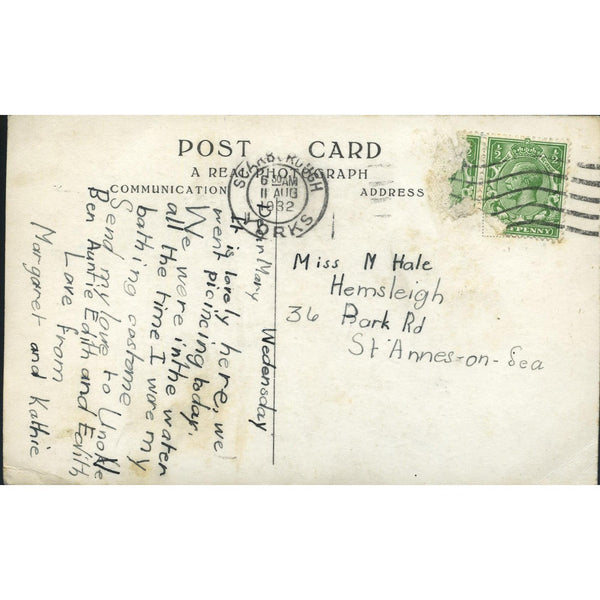 POST CARD
A REAL PHOTOGRAPH
COMMUNICATION
ADDRESS
SCARBOROUGH
6 30 AM
11 AUG
1932
YORKS
½ ½
PENNY
Wedensday
Dear Mary
It is lovely here, we
went picincing today.
We were in the water
all the time I wore my
bathing costame
Send my love to Uncle
Ben Auntie Edith and Edith
Love from
Margaret and Kathie
Miss M Hale
Hemsleigh
36 Park Rd
St Annes-on-Sea